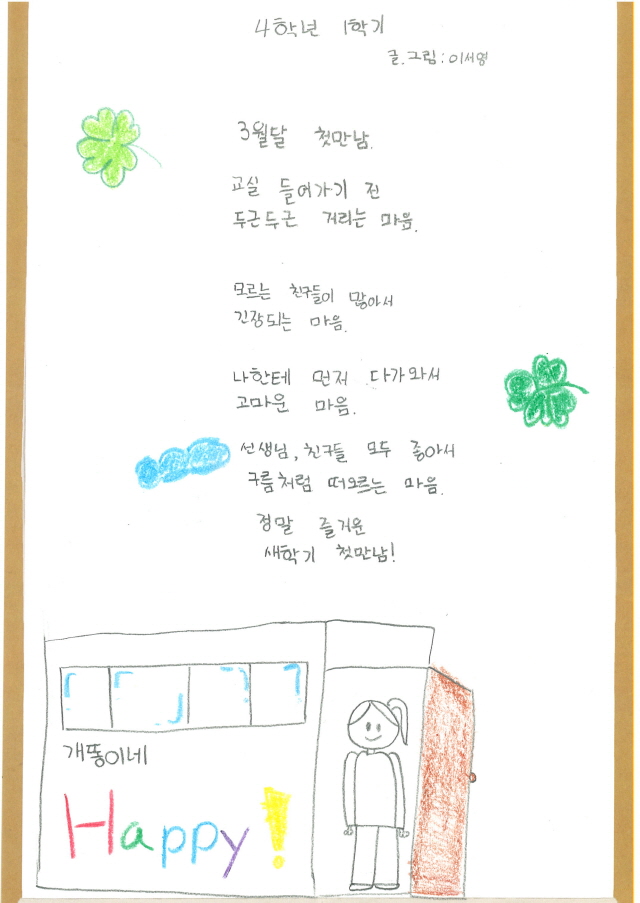 4학년 1학기
글.그림:이서영
3월달 첫만남.
교실 들어가기 전
두근두근 거리는 마음.
모르는 친구들이 많아서
긴장되는 마음.
나한테 먼저 다가와서
고마운 마음.
선생님, 친구들 모두 좋아서
구름처럼 떠오르는 마음.
정말 즐거운
새학기 첫만남!
개똥이네
Happy!